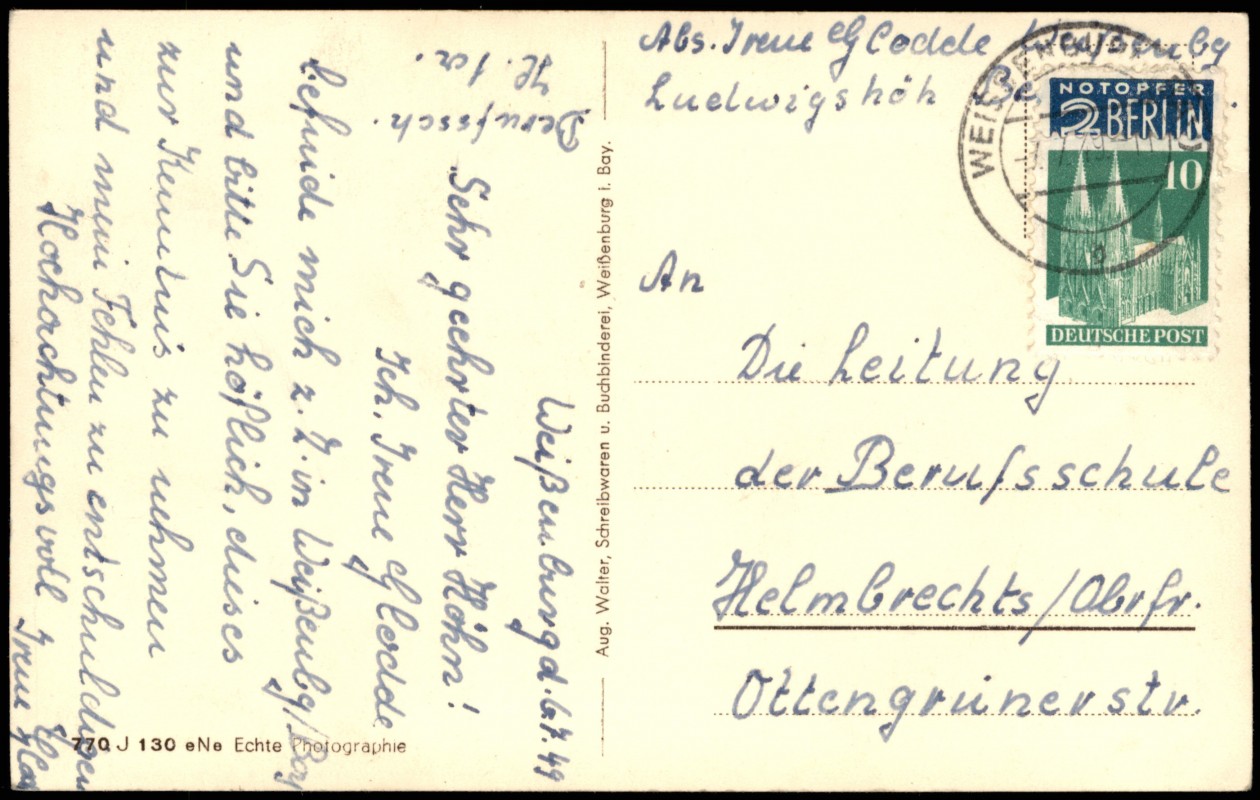 Weißenburg d. 6.7.49
Sehr geehrter Herr Höhn!
Ich, Irene Glodde
befinde mich z. Z. in Weißenbg/Bay
und bitte Sie höflich, dieses
zur Kenntnis zu nehmen
und mein Fehlen zu entschuldigen
Hochachtungsvoll Irene Glod
Berufssch.
Aug. Walter, Schreibwaren u. Buchbinderei, Weißenburg i. Bay.
770 J 130 eNe Echte Photographie
Abs. Irene Glodde Weißenbg
Ludwigshöh
WEISSENBURG
NOTOPFER
2 BERLIN
10
DEUTSCHE POST
An
Die Leitung
der Berufsschule
Helmbrechts/Obrfr.
Ottengrünerstr.